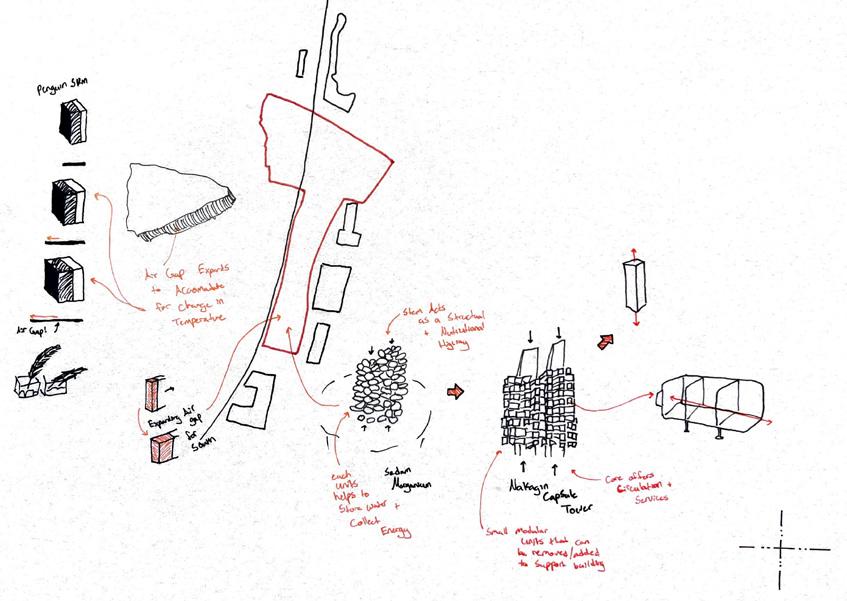 Penguin Skin
Air Gap Expands
to Accomodate
for Change in
Temperature
Air Gap!
Expanding Air
gap
for
South
Stem Acts
as a Structural
+ Nutitional
Highway
each
units
helps to
Store water +
Collect
Energy
Sedum
Morganium
Nakagin
Capsule
Tower
Core offers
Circulation +
Services
Small modular
units that can
be removed/added
to Support building